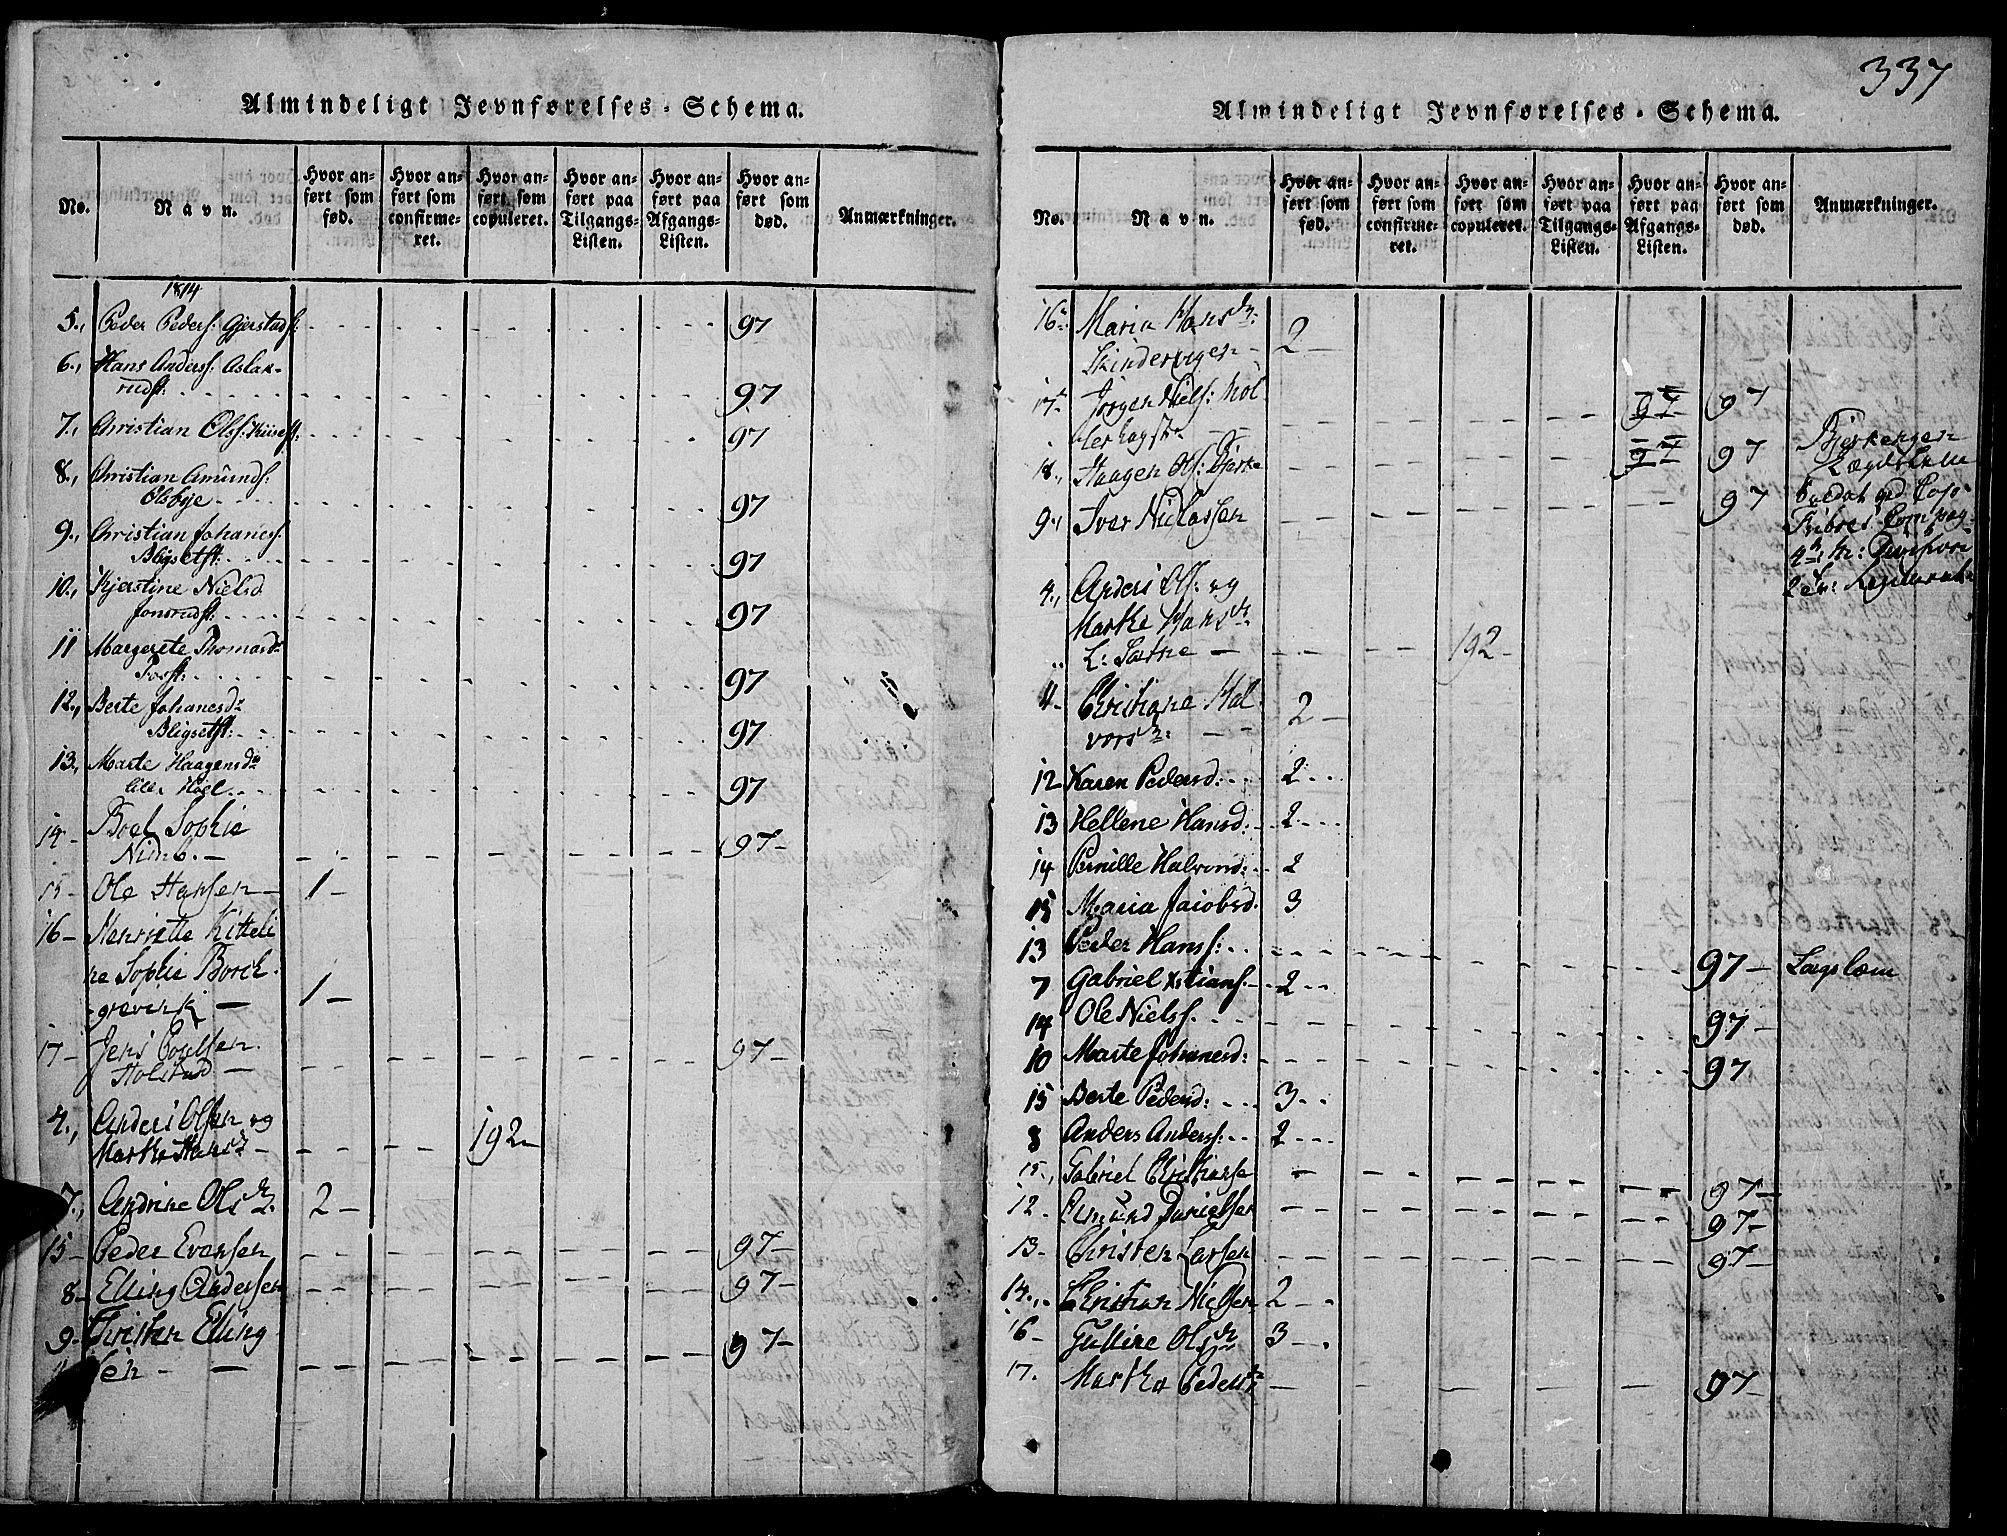 337
Almindeligt Jevnførelses-Schema.
No.
Navn.
Hvor anført som født.
Hvor anført som confirmeret.
Hvor anført som copuleret.
Hvor anført paa Tilgangs-Listen.
Hvor anført paa Afgangs-Listen.
Hvor anført som død.
Anmærkninger.
1814
5., Peder Peders: Gjerstads: 97
6., Hans Anders: Aslak-
rudst: 97
7., Christian Ols: 97
8., Christian Amunds:
Olsbye 97
9., Christian Johanes:
Bligsetst: 97
10., Kjerstine Nielsd
Jonsrudst: 97
11 Margrete Thomasd:
97
12., Berte Johanesd:
Bligsetst: 97
13., Marte Haagensd:
Lille 97
14- Boel Sophie
97-
15- Ole Hansen 1-
16- Henriette Kitteli
ne Sophie Borch
grevink 1-
17- Jens Poulsen
Holstad 97-
4., Anders Olsen og
Marthe Hansd: 192-
7., Andrine Olsd: 2-
15- Peder Evensen 97-
8- Elling Andersen 97-
9- Christen Elling
sen 97-
Almindeligt Jevnførelses-Schema.
No.
Navn.
Hvor anført som født.
Hvor anført som confirmeret.
Hvor anført som copuleret.
Hvor anført paa Tilgangs-Listen.
Hvor anført paa Afgangs-Listen.
Hvor anført som død.
Anmærkninger.
16- Maria Hansd:
2-
17- Jørgen Niels: Mol-
lerhagst: 97 97
18., Haagen Ols: Bjerke 97 97
9., Iver Niclassen 97
4., Anders Ols: og
Marthe Hansd:
192-
4- Christiane Hal
vorsd: 2-
12 Karen Pedersd: 2
13 Hellene Hansd: 2
14 Pernille Halvorsd: 2
15 Maria Jacobsd: 3
13 Peder Hans: 97-
7 Gabriel Xstians: 2
14 Ole Niels: 97-
10 Marte Johanesd: 97
15 Berte Pedersd: 3
8 Anders Anders: 2
15., Gabriel Christianse 97-
12- Danielsen 97-
13- Christen Larsen 97-
14., Christian Nielsen 2
16- Gulline Olsd: 3
17. Martha Pedersd: 97-